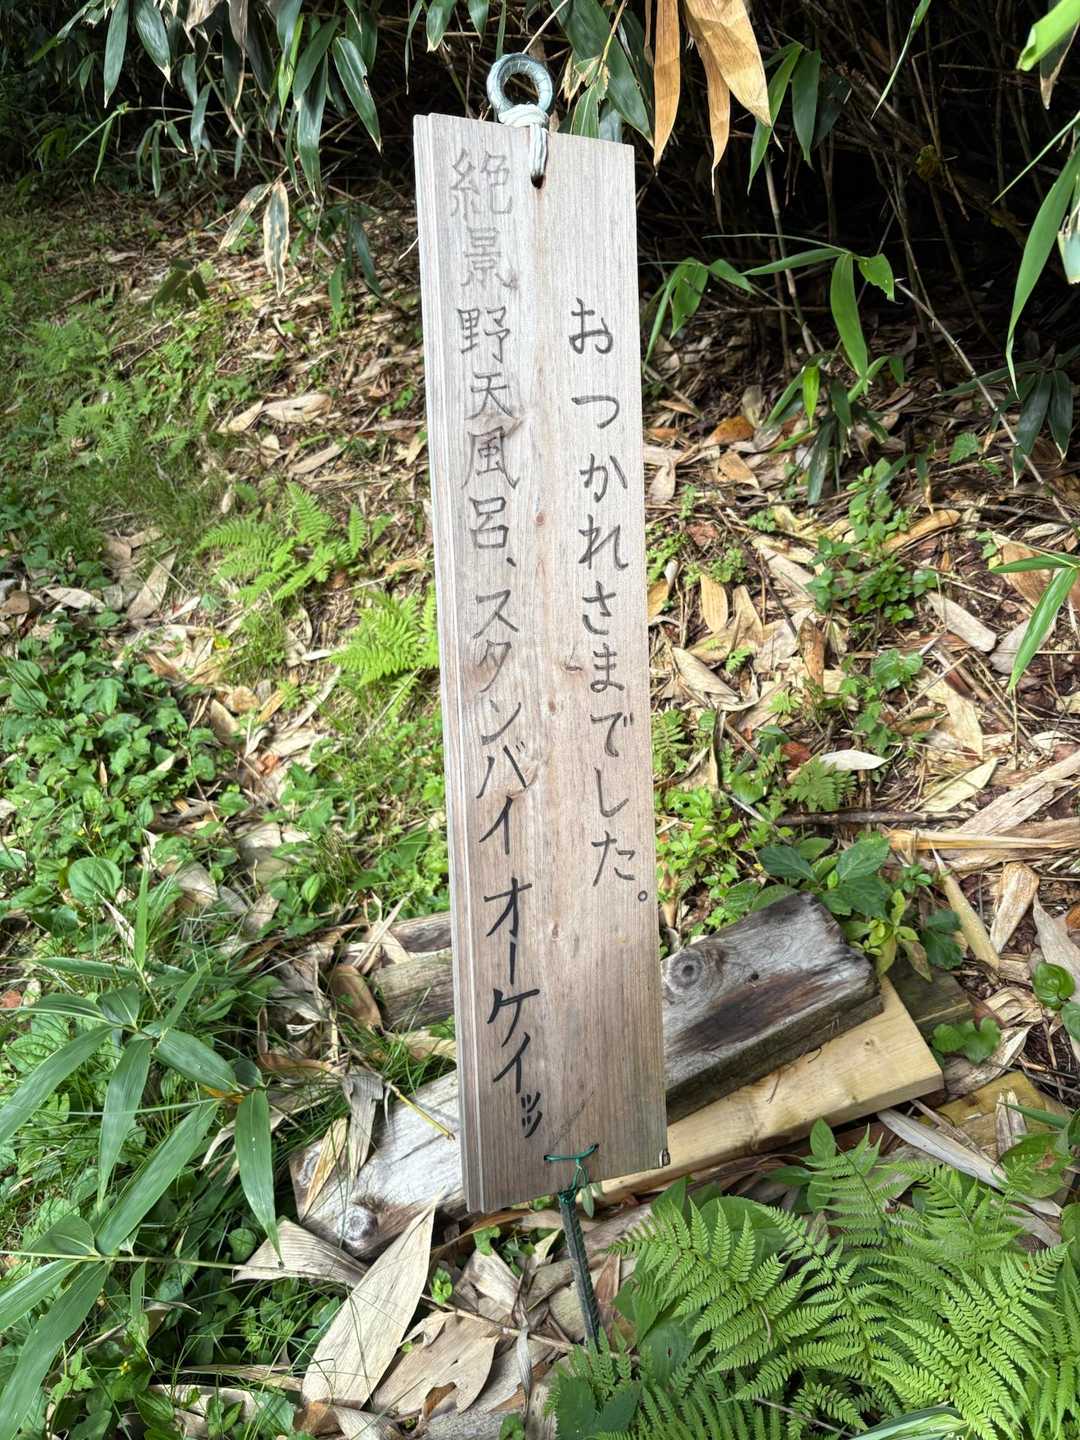 おつかれさまでした。
絶景野天風呂、スタンバイオーケイッ